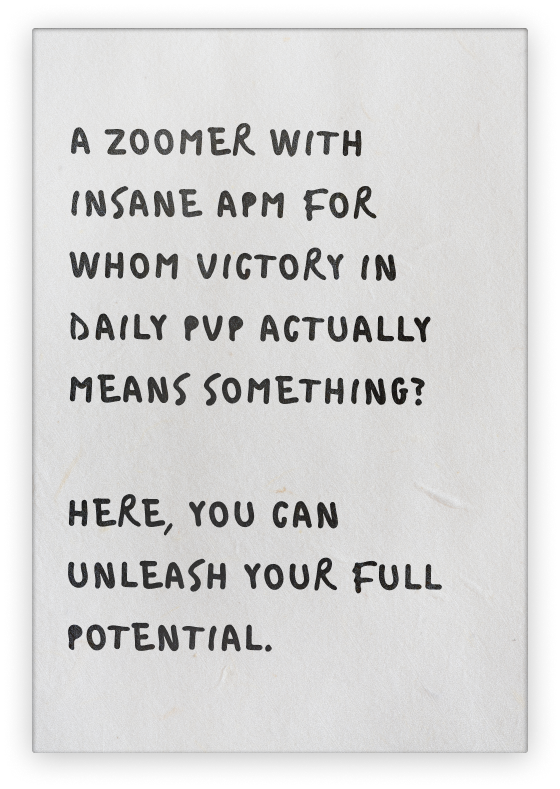 A ZOOMER WITH
INSANE APM FOR
WHOM VICTORY IN
DAILY PVP ACTUALLY
MEANS SOMETHING?
HERE, YOU CAN
UNLEASH YOUR FULL
POTENTIAL.